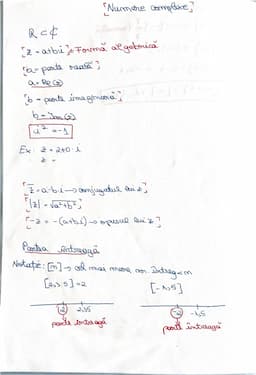 [Numere complexe]
R ⊂ ℂ
[z = a+bi] → Formă algebrică
[a = parte reală];
a = Re(z)
[b = parte imaginară];
b = Im(z)
i² = -1
Ex: z = 2+0·i
z =
[z̄ = a-bi → conjugatul lui z];
[|z| = √a²+b²];
[-z = -(a+bi) → opusul lui z];
Partea întreagă
Notație: [m] → cel mai mare nr. întreg ≤ m
[2,35] = 2 [-1,5]
2 2,35 -2 -1,5
parte întreagă parte întreagă